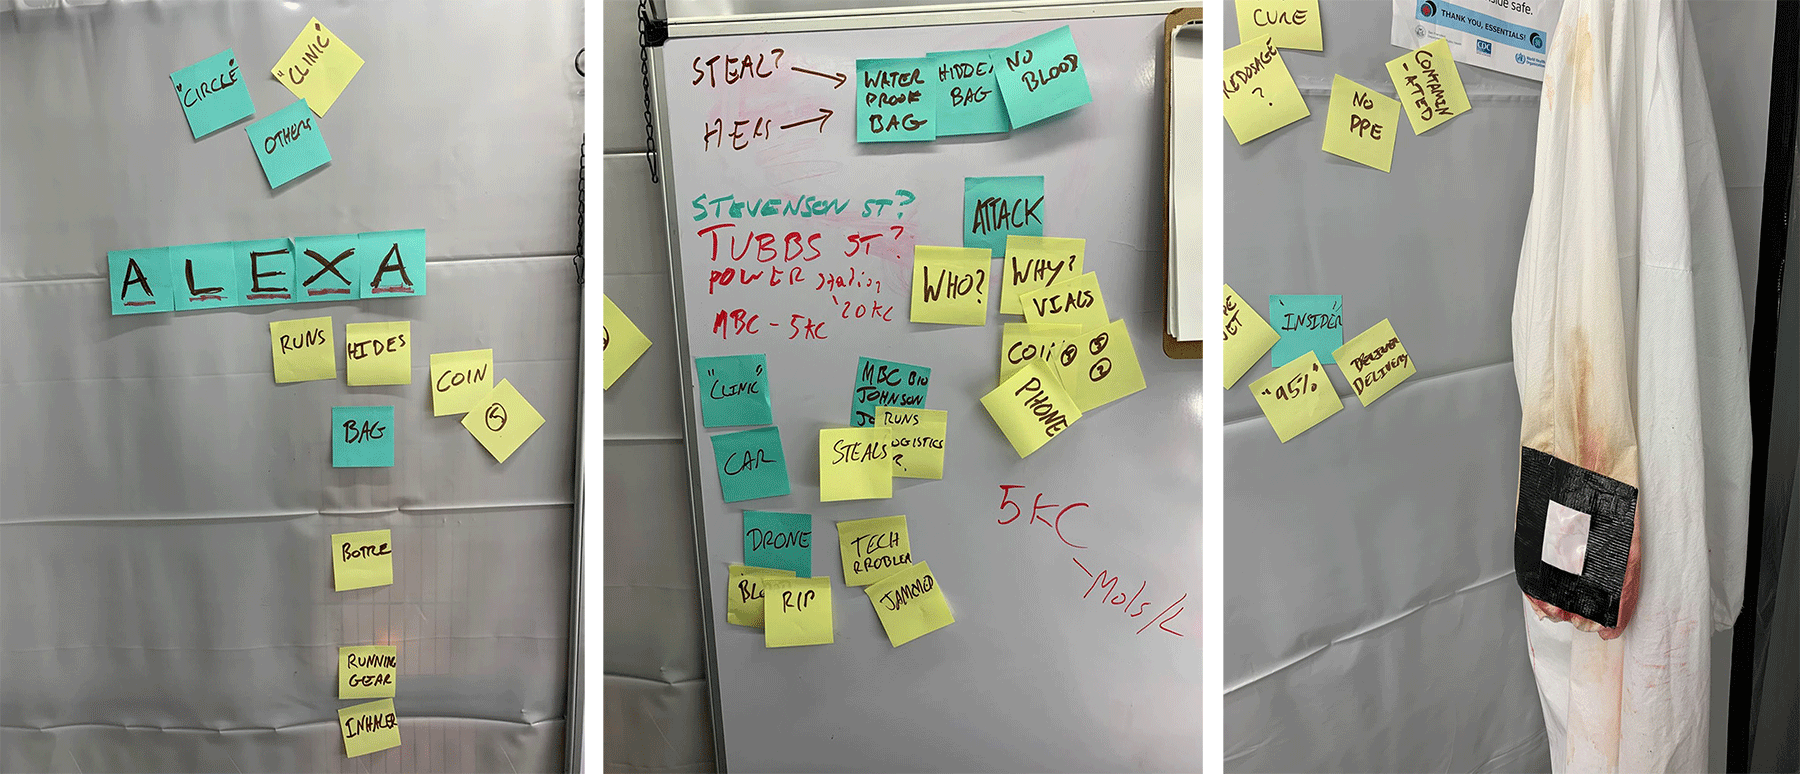 "CIRCLE"
"CLINIC"
OTHERS
ALEXA
RUNS
HIDES
COIN
BAG
BOTTLE
RUNNING
GEAR
INHALER
STEAL?
HERS
WATER
PROOF
BAG
HIDDEN
BAG
NO
BLOOD
STEVENSON ST?
TUBBS ST?
POWER station
'20KC
MBC - 5KC
ATTACK
WHO?
WHY?
VIALS
COIN
PHONE
"CLINIC"
CAR
MBC BIO
JOHNSON
RUNS
LOGISTICS
?
STEALS
DRONE
RIP
TECH
PROBLEM
JAMMED
5KC
- Mols/L
CURE
OVERDOSAGE
?
NO
PPE
CONTAMIN
-ATED
side safe.
THANK YOU, ESSENTIALS!
CDC
"INSIDER"
"95%"
DELIVERY